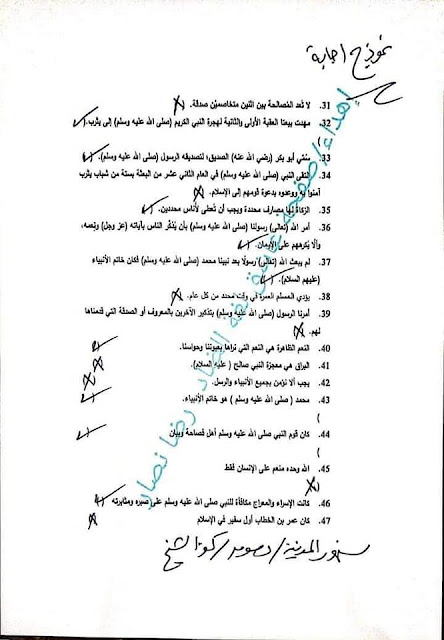 نموذج إجابة
31. لا تُعد المصالحة بين اثنين متخاصمين صدقة.
32. مهدت بيعتا العقبة الأولى والثانية لهجرة النبي الكريم (صلى الله عليه وسلم) إلى يثرب. (
)
33. سُمّي أبو بكر (رضي الله عنه) الصديق؛ لتصديقه الرسول (صلى الله عليه وسلم). (
34. التقى النبي (صلى الله عليه وسلم) في العام الثاني عشر من البعثة بستة من شباب يثرب
آمنوا به ووعدوه بدعوة قومهم إلى الإسلام.
35. الزكاة لها مصارف محددة ويجب أن تُعطى لأناس محددين. (
36. أمر الله (تعالى) رسولنا (صلى الله عليه وسلم) بأن يُذكّر الناس بآياته (عز وجل) ونعمه،
وألا يُكرههم على الإيمان. (
37. لم يبعث الله (تعالى) رسولًا بعد نبينا محمد (صلى الله عليه وسلم) فكان خاتم الأنبياء
(عليهم السلام). (
38. يؤدي المسلم العمرة في وقت محدد من كل عام.
39. أمرنا الرسول (صلى الله عليه وسلم) بتذكير الآخرين بالمعروف أو الصدقة التي قدمناها
لهم.
40. النعم الظاهرة هي النعم التي نراها بعيوننا وحواسنا.
41. البراق هي معجزة النبي صالح ( عليه السلام).
42. يجب ألا نؤمن بجميع الأنبياء والرسل.
43. محمد ( صلى الله عليه وسلم ) هو خاتم الأنبياء.
(
44. كان قوم النبي صلى الله عليه وسلم أهل فصاحة وبيان
(
45. الله وحده منعم على الإنسان فقط
46. كانت الإسراء والمعراج مكافأة للنبي صلى الله عليه وسلم على صبره ومثابرته
47. كان عمر بن الخطاب أول سفير في الإسلام
إهداء/ صفحة
رضا نصار
سنهور المدينة / دسوق / كفر الشيخ